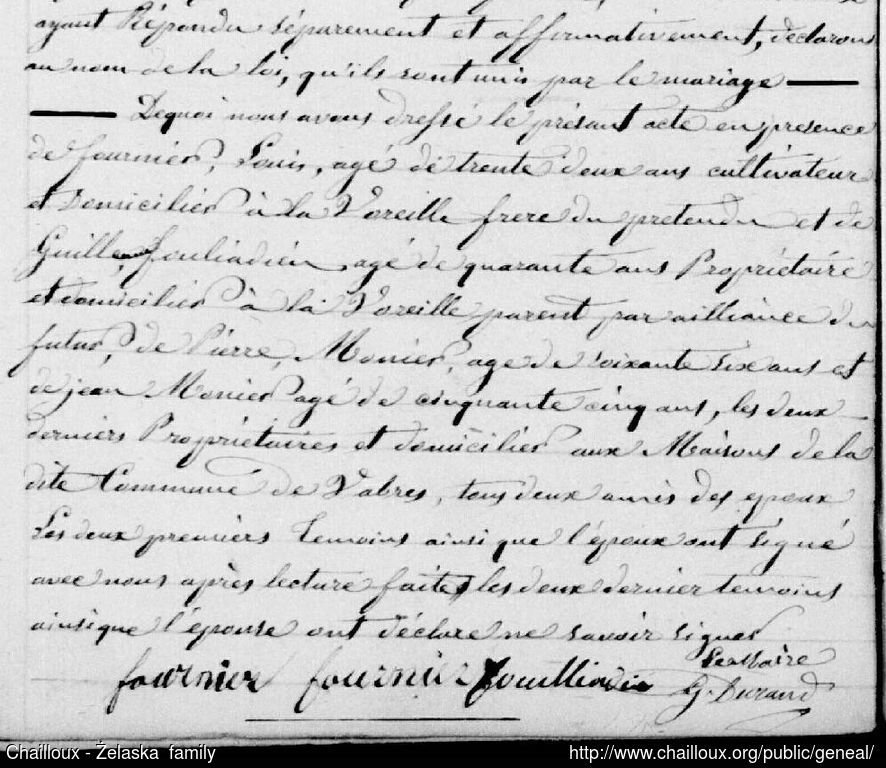 ayant Répondu séparement et affirmativement, declarons
au nom de la loi, qu'ils sont unis par le mariage
Dequoi nous avons dressé le présant acte en presence
de fournier, Louis, agé de trente deux ans cultivateur
et Domicilier à la Voreille frere du pretendu et de
Guille, fouliadien, agé de quarante ans Propriétaire
et domicilier à la Voreille parent par ailliance du
futur, de Pierre, Monier, age de soixante six ans et
de jean Monier agé de cinquante cinq ans, les deux
derniers Propriétaires et domicilier aux Maisons de la
dite Commune de Vabres, tous deux amis des epoux
Les deux premiers temoins ainsi que l'époux ont signé
avec nous après lecture faite, les deux dernier temoins
ainsi que l'épouse ont déclaré ne savoir signer
Le Maire
fournier fournier fouilliadie G. Durand
Chailloux - Żelaska family http://www.chailloux.org/public/geneal/